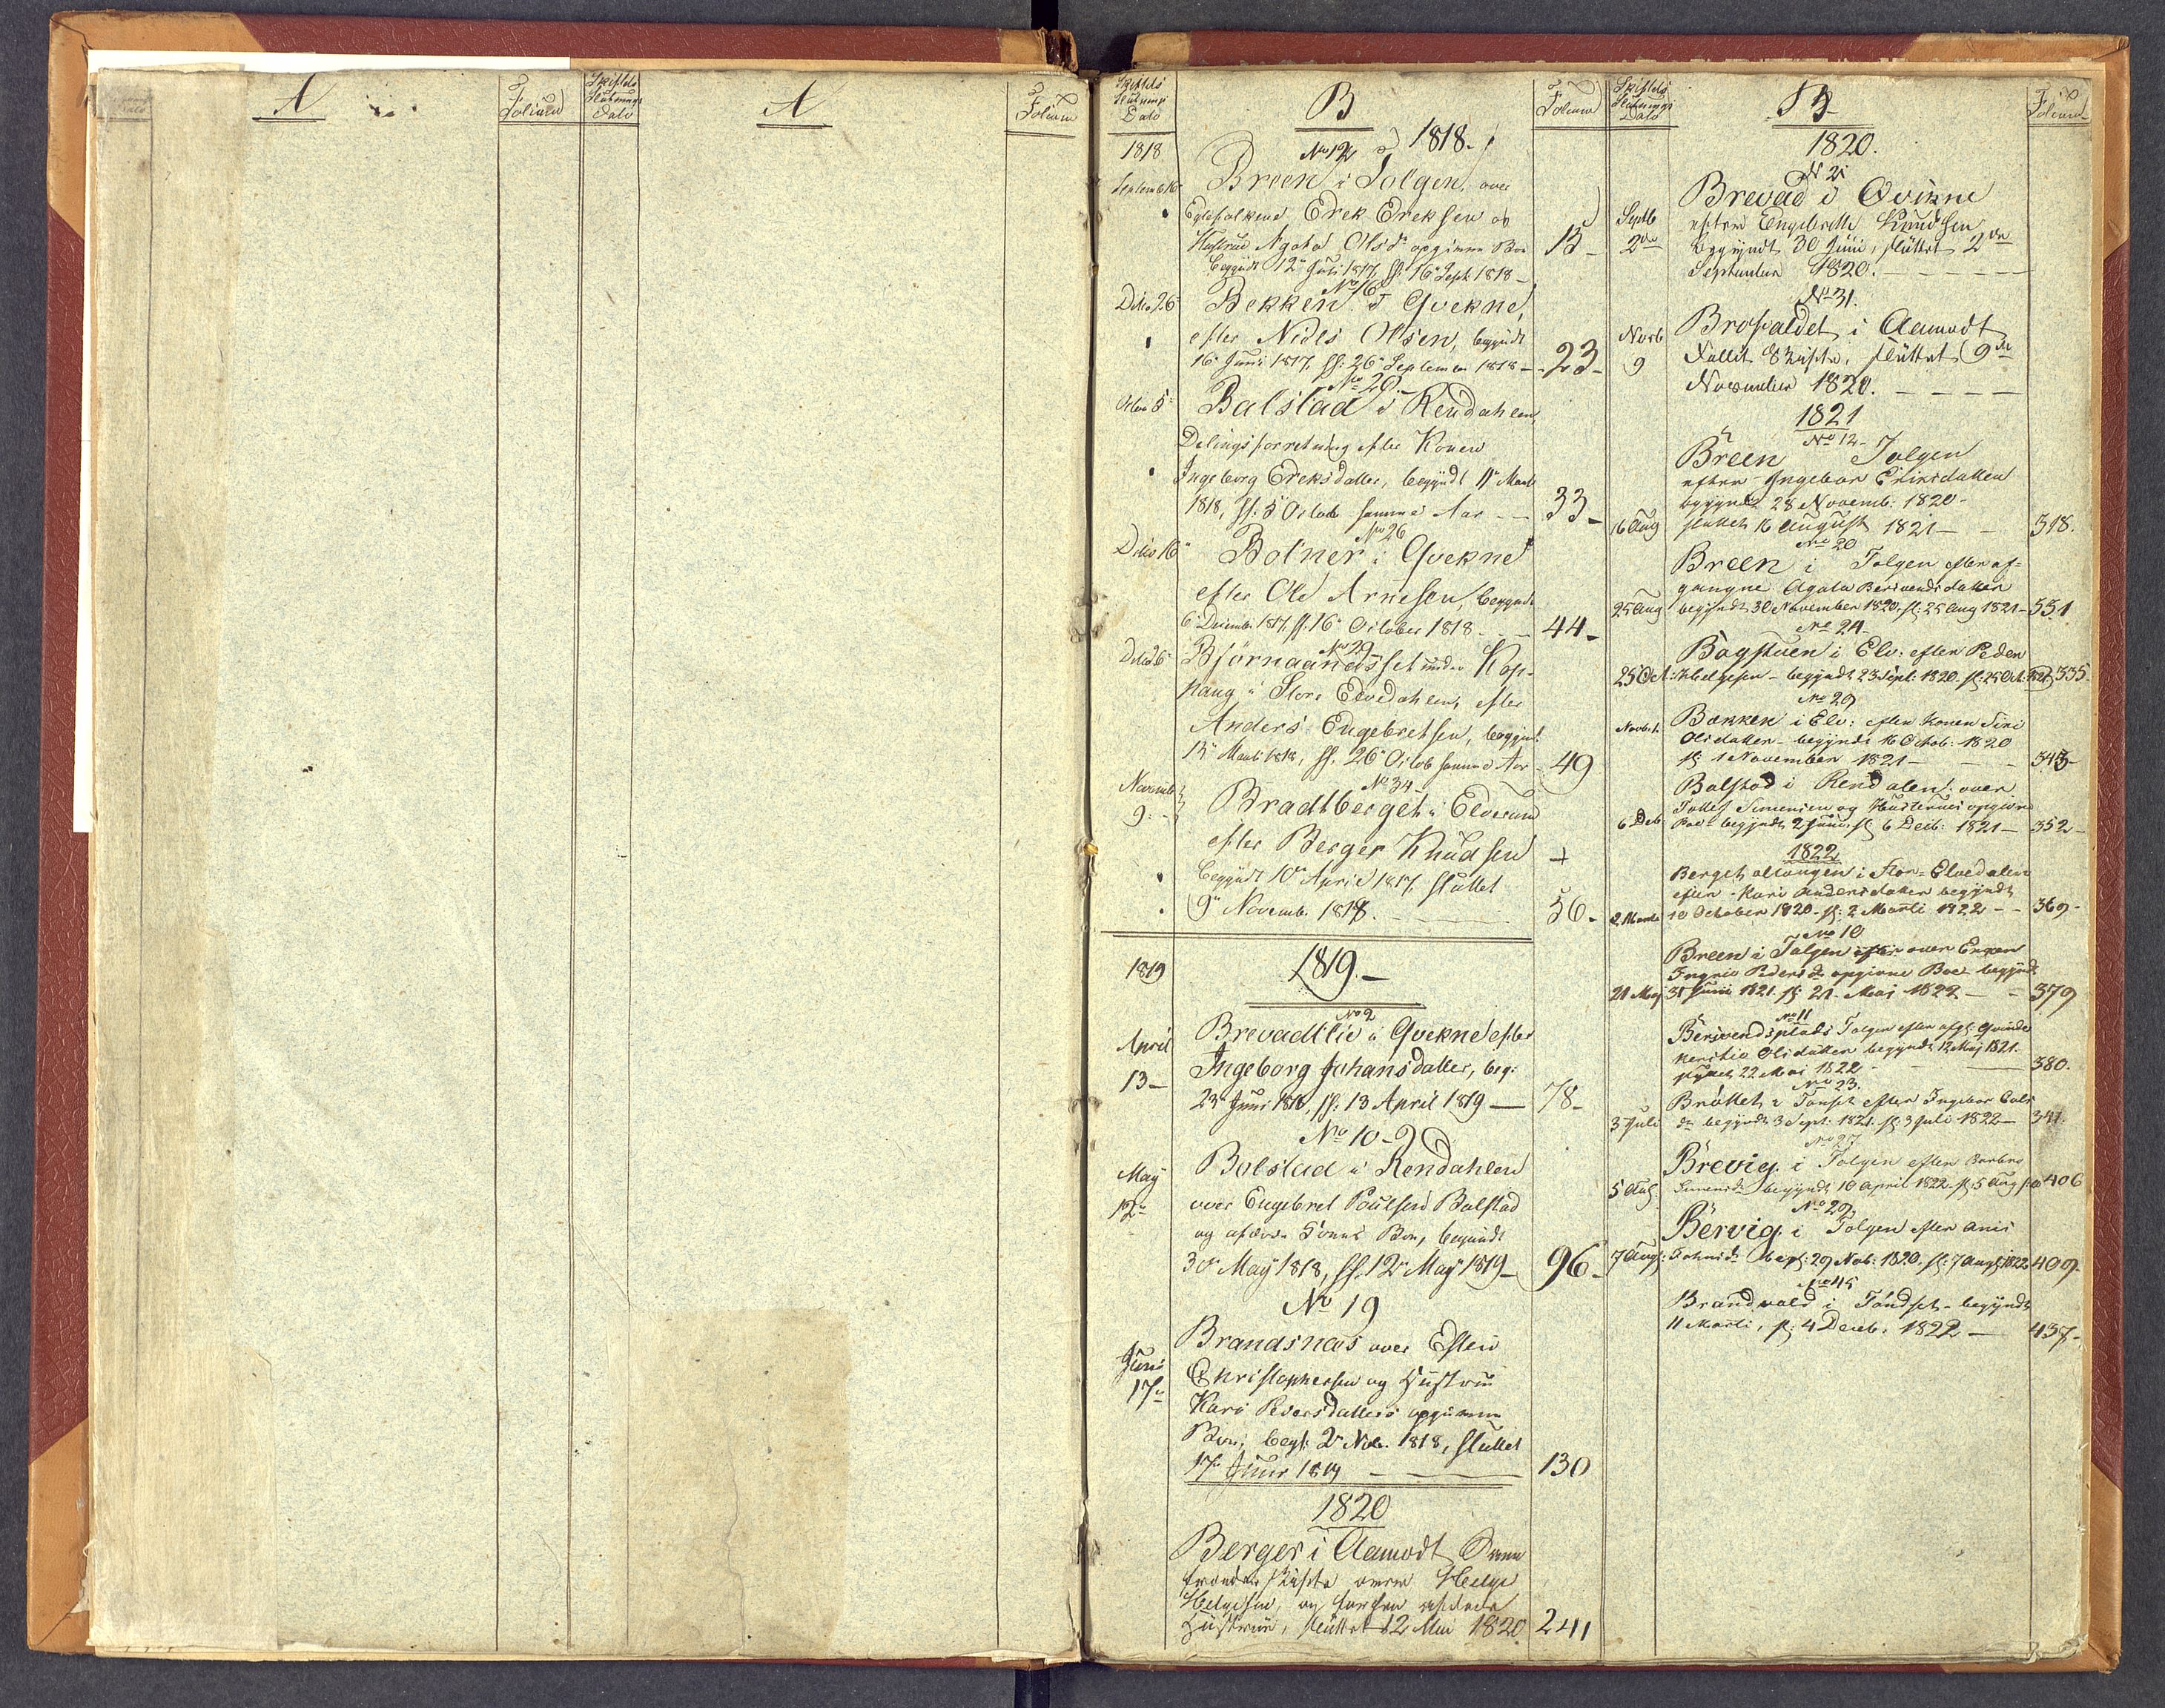 A
Folium
Skiftets
Slutnings
Dato
A
Folium
Skiftets
Slutnings
Dato
B
Folium
1818
No 12 1818.
Septemb 16
Breen i Tolgen, over
Egtefolkene Erek Ereksen og
Hustrue Agata Olsd. opgivne Boe
begyndt 12 Juli 1817, sl. 16 Sept 1818 -
15 -
No 16
Ditto 26
Bekken i Qvekne,
efter Nils Olsen, begyndt
16 Junii 1817, sl: 26 September 1818 -
23 -
No 20.
Octbr 5
Balstad i Rendahlen,
Delingsforretning efter Konen
Ingeborg Ereksdatter, begyndt 11 Marti
1818, sl. 5 Octob samme Aar
33 -
No 26
Ditto 16
Bolner i Qvekne
efter Ole Arnesen, begyndt
6 Decemb. 1817, sl. 16 October 1818
44 -
No 29
Ditto 26
Bjørnaandsset under Kop-
hang i Store Elvedahlen, efter
Anders Engebretsen, begyndt
13 Marti 1818, sl. 26 Octob samme Aar
49
No 34
Novemb
9.
Bradtberget i Elverum
efter Berger Knudsen
begyndt 10 April 1817, sluttet
9 Novemb. 1818.
56 -
1819
1819. -
No 2
April
13 -
Brevadtlie i Qvekne efter
Ingeborg Johansdatter, beg:
23 Juni 1818, sl: 13 April 1819 -
78 -
No 10 -
May
12
Bolstad i Rendahlen
over Engebret Poulsen Balstad
og afdøde Kones Boe, begyndt
30 May 1818, sl. 12 May 1819 -
96 -
No 19
Junii
17
Brandsnæs over Esten
Christophersen og Hustrue
Kari Pedersdatters opgivne
Boe, begt: 2 Nov. 1818, sluttet
17 Juni 1819
130
1820
Berger i Aamodt
skifte over Helge
Helgesen, og afdøde
Hustrue, sluttet 12 Mai 1820
241
Skiftets
Slutnings
Dato
B
Folium
1820.
No 21
Septb
2den
Brevad i Qvikne
efter Engebrette Knudsen
begyndt 30 Junii, sluttet 2den
September 1820.
No 31.
Novb
9
Brofaldet i Aamodt
Fallit Skifte, sluttet 9de
November 1820.
1821
No 12
Breen Tolgen
efter Ingebor Erixdatter
begyndt 28 Novemb: 1820 -
16 Aug
sluttet 16 August 1821 -
318.
No 20
Breen i Tolgen efter af-
gangne Agata Bersvendsdatter
25 Aug
begyndt 30 November 1820. sl: 25 Aug 1821 -
331
No 24
Bagstuen i Elv: efter Peder
25 Oct:
Helgesen - begyndt 23 Sept: 1820. sl: 25 Oct: 1821
335
No 29
Novbr 1.
Bakken i Elv: efter Konen Siri
Olsdatter - begyndt 16 Octob: 1820
sl: 1 November 1821 -
343 -
Balstad i Rendalen: over
Tollef Simensen og Hustrues opgivne
6 Deb
Boe - begyndt 2 Junii, sl: 6 Decb: 1821 -
352 -
1822
Berget altangen i Stor-Elvedalen
efter Kari Andersdatter begyndt
2 Marti
10 October 1820 - sl: 2 Marti 1822 -
369 -
No 10
Breen i Tolgen over Enken
Ingrid Pedersd. opgivne Boe - begyndt
21 Maj
31 Junii 1821. sl: 21 Mai 1822 -
379
No 11
Bersvendsplads Tolgen efter afgl: Qvinde
Kersti Olsdatter begyndt 12 Maj 1821.
sluttet 22 Mai 1822
380.
No 23.
Brøttet i Tønset efter Ingebor
3 Juli
begyndt 3 Sept: 1821. sl: 3 Juli 1822 -
341.
No 27
Brevig i Tolgen efter Barbro
5 Aug.
Simensd. begyndt 10 April 1822. sl: 5 Aug
406
No 29
Bervig i Tolgen efter Anne
7 Aug:
Johnsd. begt: 29 Nob: 1820. sl: 7 Augt 1822
409 -
No 45
Brandvold i Tøndset - begyndt
11 Marti, sl: 4 Deceb: 1822 -
437 -